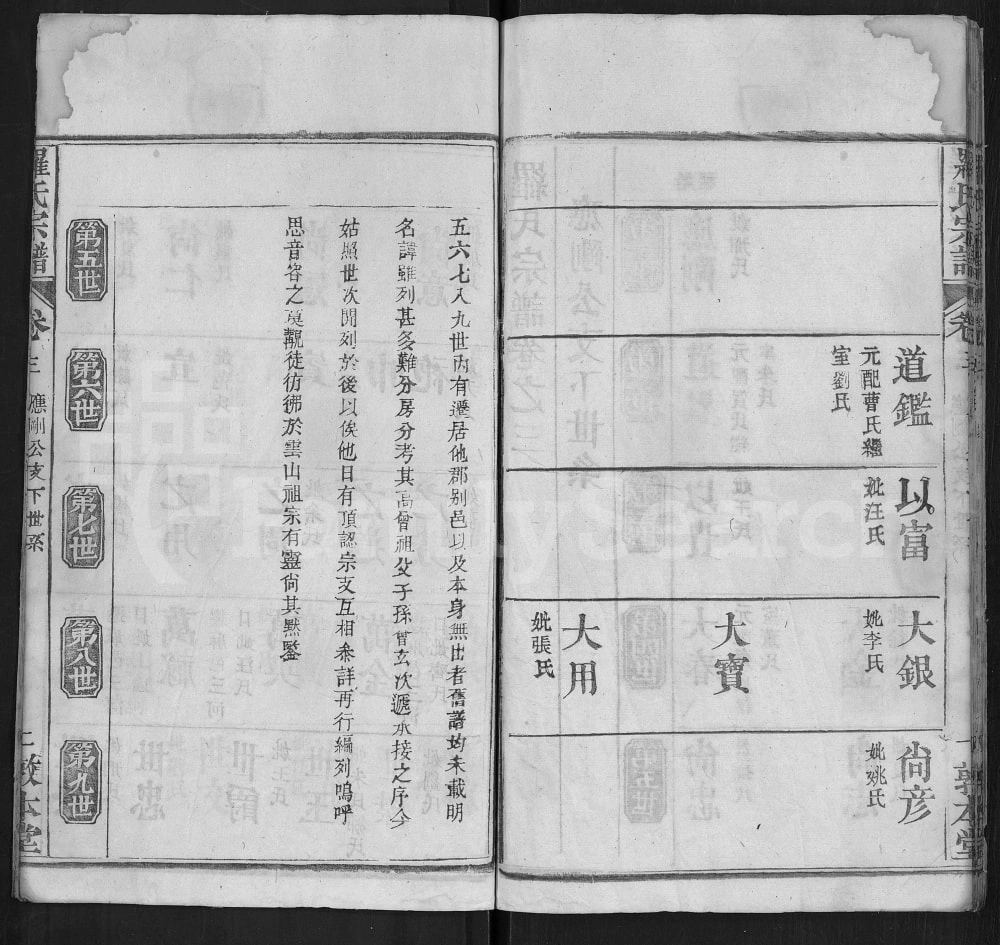 羅氏宗譜
卷三
一 敦本堂
道鑑
元配曹氏繼
室劉氏
以富
妣汪氏
大銀
妣李氏
大寶
大用
妣張氏
尙彦
妣姚氏
五六七八九世內有遷居他郡别邑以及本身無出者舊譜均未載明
名諱雖列甚多難分房分考其高曾祖父子孫曾玄次遞承接之序今
姑照世次開列於後以俟他日有頂認宗支互相叅詳再行編列嗚呼
思音容之莫覯徒彷彿於雲山祖宗有靈尙其默鑒
第五世
第六世
第七世
第八世
第九世
羅氏宗譜
卷三
應剛公支下世系
二 敦本堂